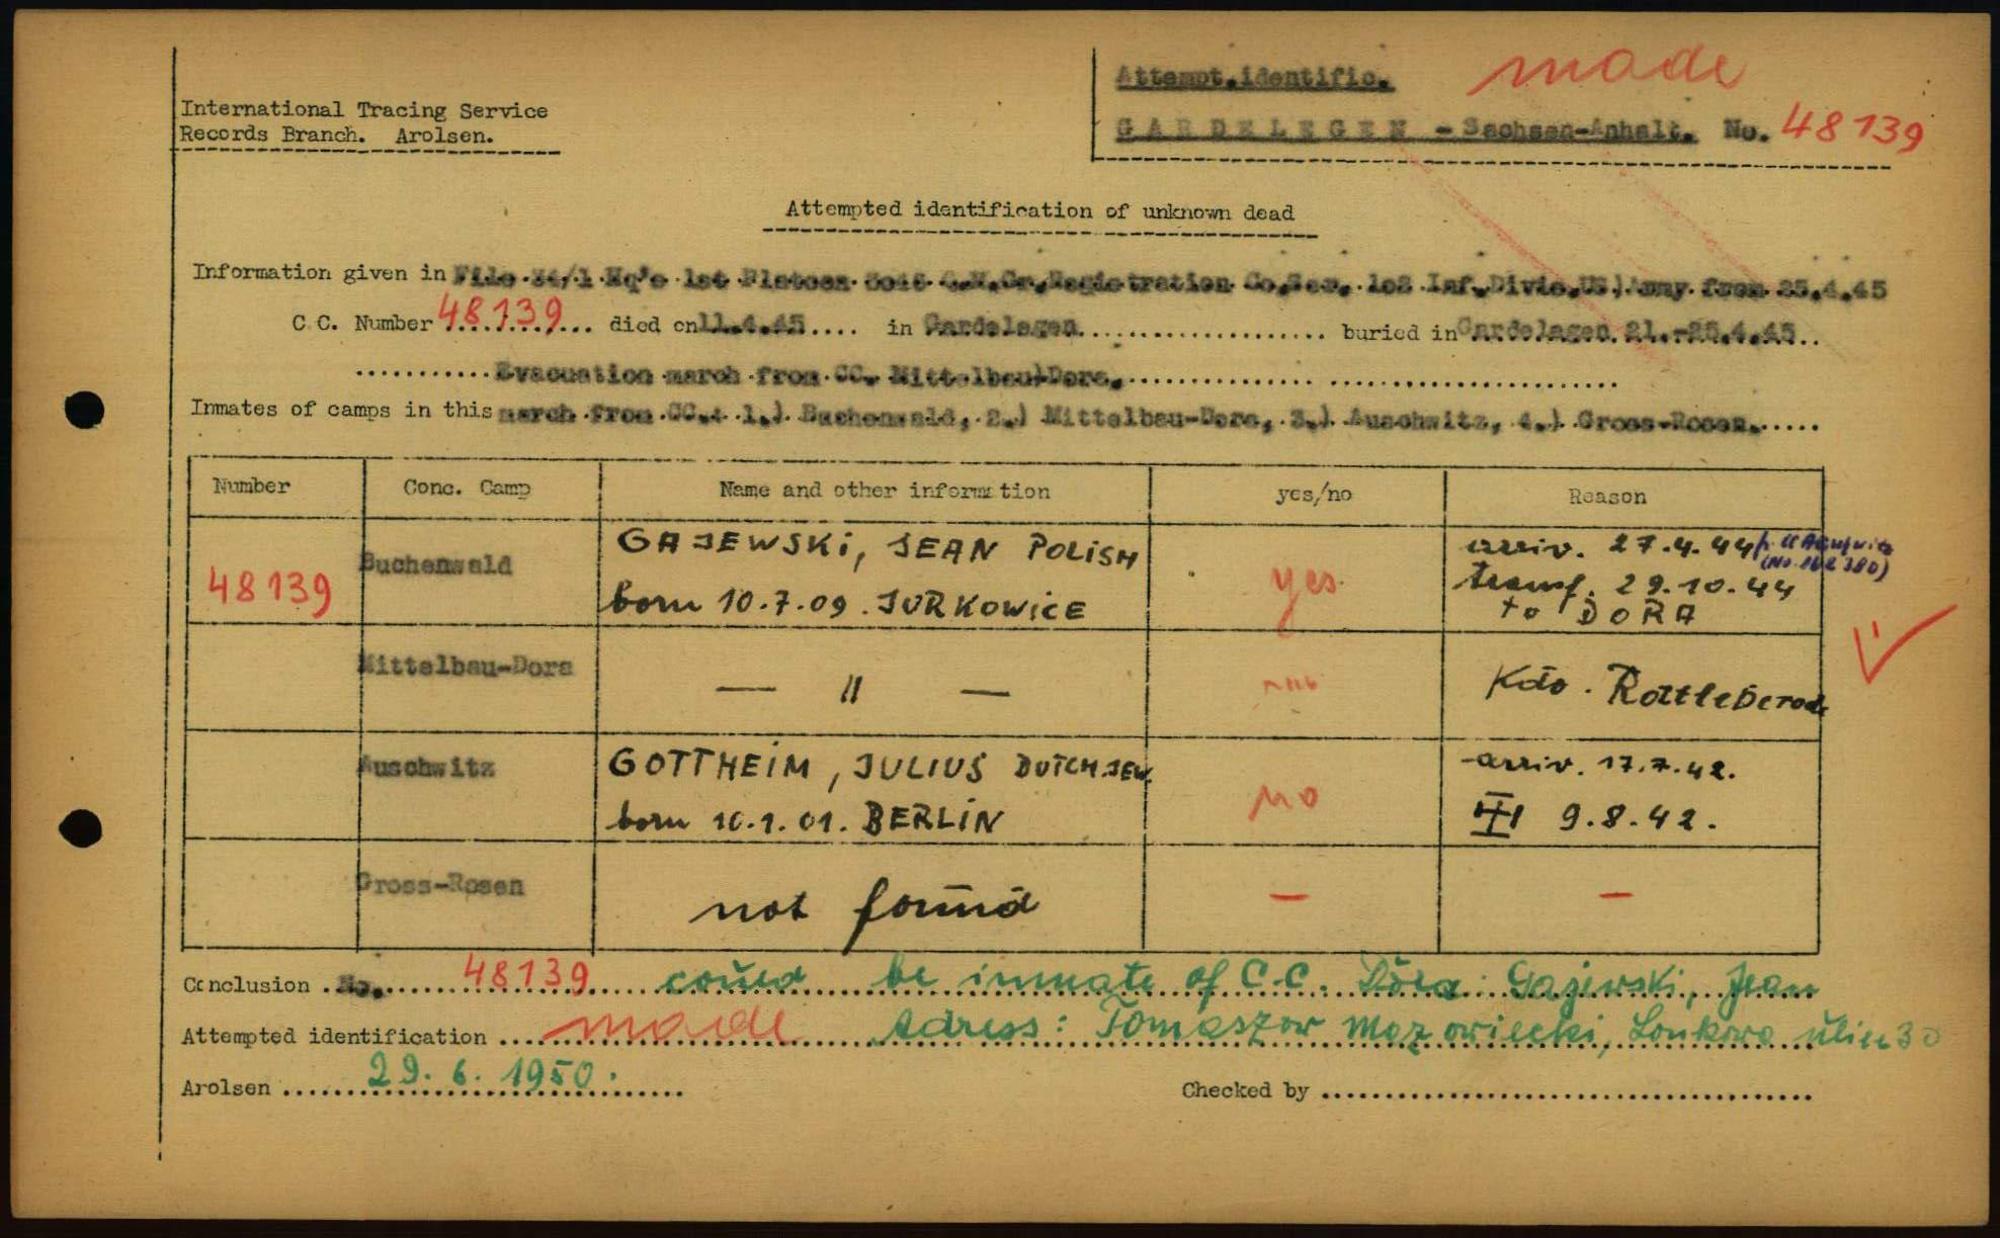 International Tracing Service
Records Branch. Arolsen.
Attempt.identific. made
GARDELEGEN - Sachsen-Anhalt. No. 48139
Attempted identification of unknown dead
Information given in File 34/1 Hq's 1st Platoon Registration Co, 102 Inf. US Army from 25.4.45
C.C. Number 48139 died on 11.4.45 in Gardelegen buried in Gardelegen 21.-25.4.45
Evacuation march from CC. Mittelbau-Dora.
Inmates of camps in this march from CC.: 1.) Buchenwald, 2.) Mittelbau-Dora, 3.) Auschwitz, 4.) Gross-Rosen.
Number Conc. Camp Name and other information yes/no Reason
48139 Buchenwald GAJEWSKi, JEAN POLiSH yes arriv. 27.4.44
born 10.7.09. JURKOWiCE transf. 29.10.44
to DORA
Mittelbau-Dora — 〃 — Kdo. Rottleberode
Auschwitz GOTTHEiM, JULIUS DUTCH.JEW. no arriv. 17.7.42.
born 10.1.01. BERLiN 9.8.42.
Gross-Rosen not found — —
Conclusion No. 48139 could be inmate of C.C. Dora: Gajewski, Jean
Attempted identification made Adress: Tomaszow Mazowiecki, 30
Arolsen 29.6.1950.
Checked by